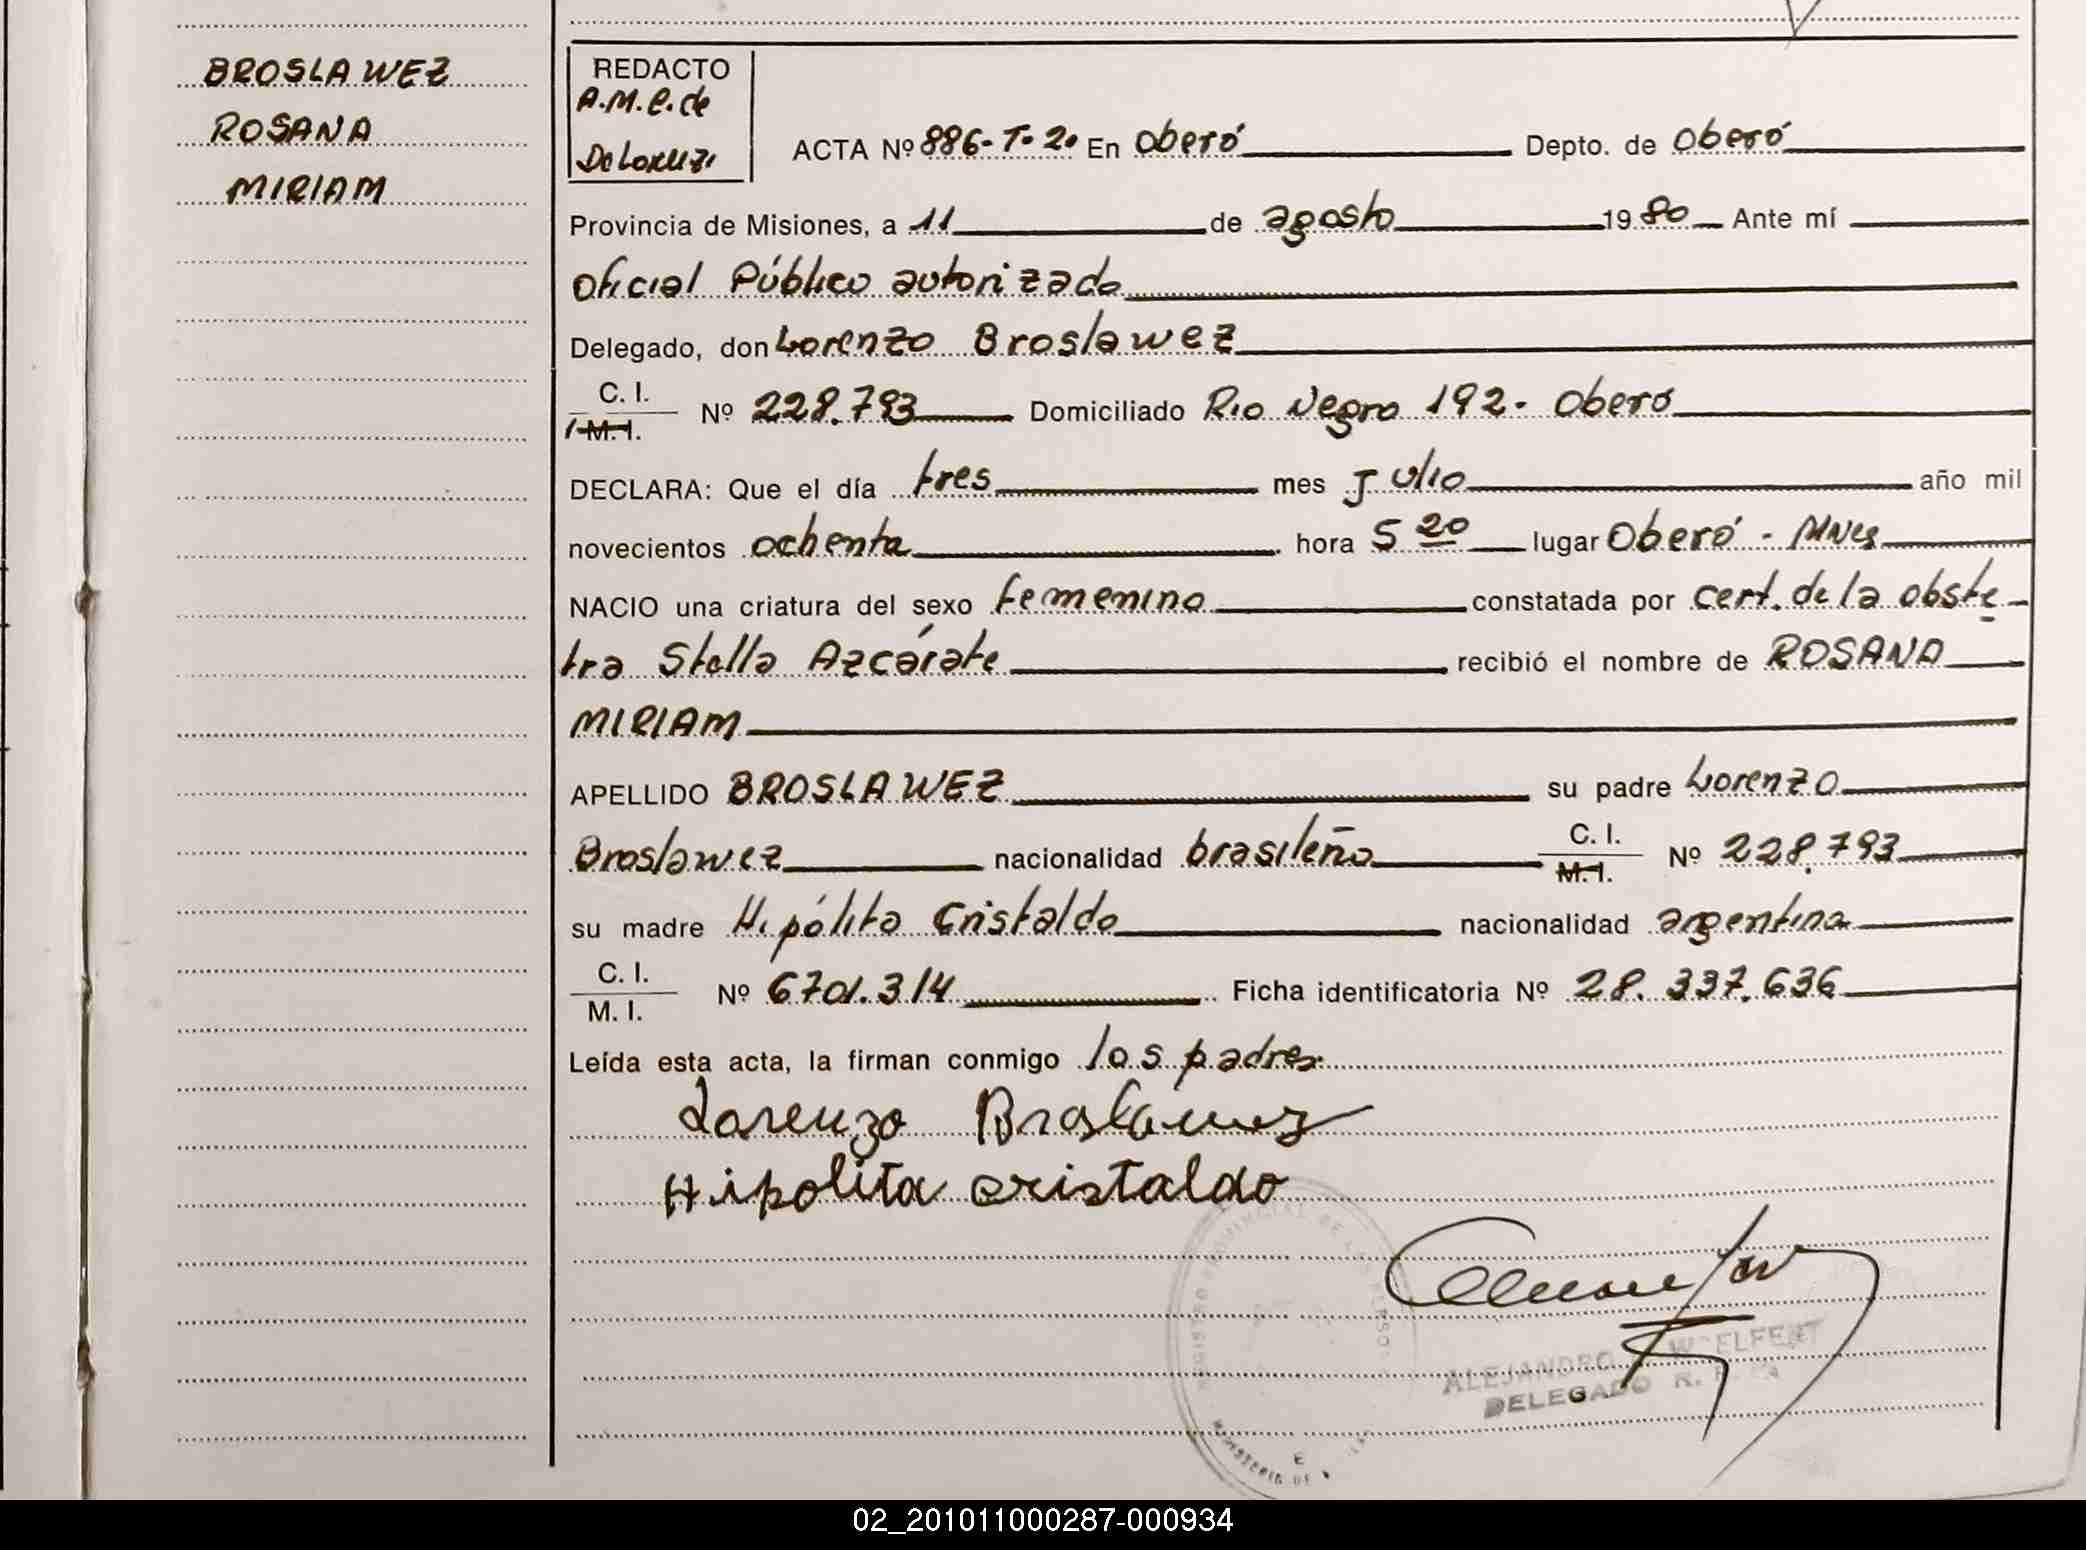 BROSLAWEZ
ROSANA
MIRIAM
REDACTO
A.M.C. de
De Lorenzi
ACTA Nº 886-T-2º En Oberá Depto. de Oberá
Provincia de Misiones, a 11 de agosto 1980 Ante mí
Oficial Público autorizado
Delegado, don Lorenzo Broslawez
C. I.
M. I.
Nº 228.793 Domiciliado Rio Negro 192- Oberá
DECLARA: Que el día tres mes Julio año mil
novecientos ochenta hora 5 20 lugar Oberá - Mnes
NACIO una criatura del sexo femenino constatada por cert. de la obste
tra Stella Azcárate recibió el nombre de ROSANA
MIRIAM
APELLIDO BROSLAWEZ su padre Lorenzo
Broslawez nacionalidad brasileño C. I. M. I. Nº 228.793
su madre Hipólita Cristaldo nacionalidad argentina
C. I.
M. I.
Nº 6701.314 Ficha identificatoria Nº 28.337.636
Leída esta acta, la firman conmigo los padres
Lorenzo Broslawez
Hipolita cristaldo
ALEJANDRO
DELEGADO
02_201011000287-000934